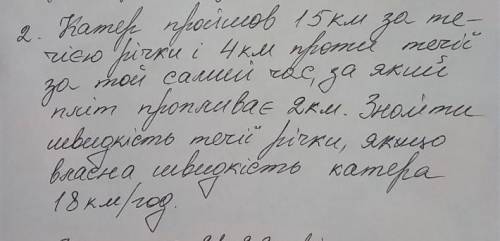 2. Катер пройшов 15 км за те-
чією річки і 4 км проти течії
за той самий час, за який
пліт пропливає 2 км. Знайти
швидкість течії річки, якщо
власна швидкість катера
18 км/год.